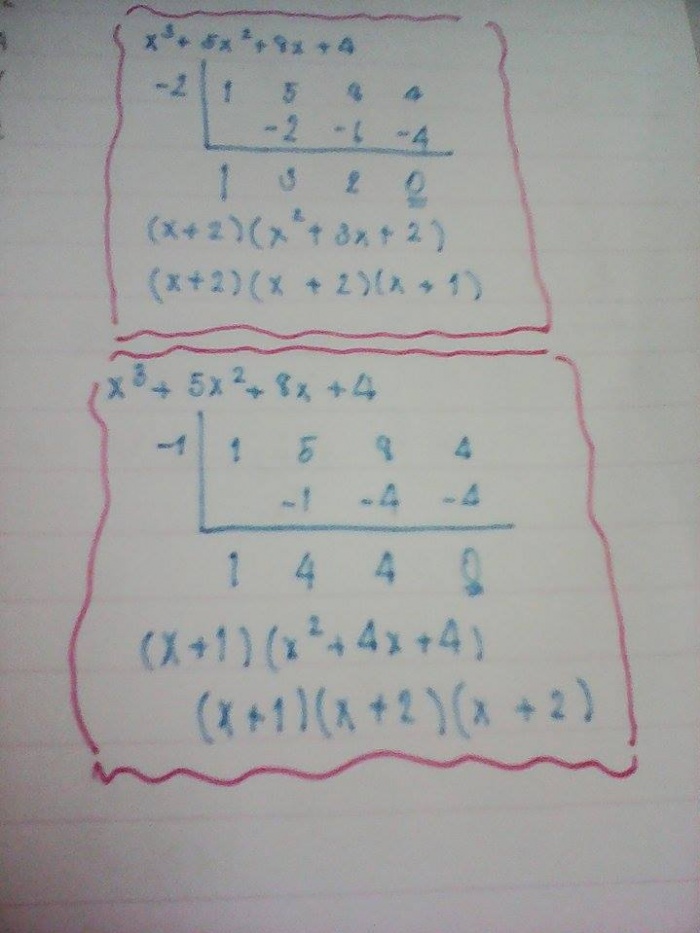 x³ + 5x² + 8x + 4
-2 1 5 8 4
-2 -6 -4
1 3 2 0
(x+2)(x² + 3x + 2)
(x+2)(x + 2)(x + 1)
x³ + 5x² + 8x + 4
-1 1 5 8 4
-1 -4 -4
1 4 4 0
(x+1)(x² + 4x + 4)
(x+1)(x + 2)(x + 2)